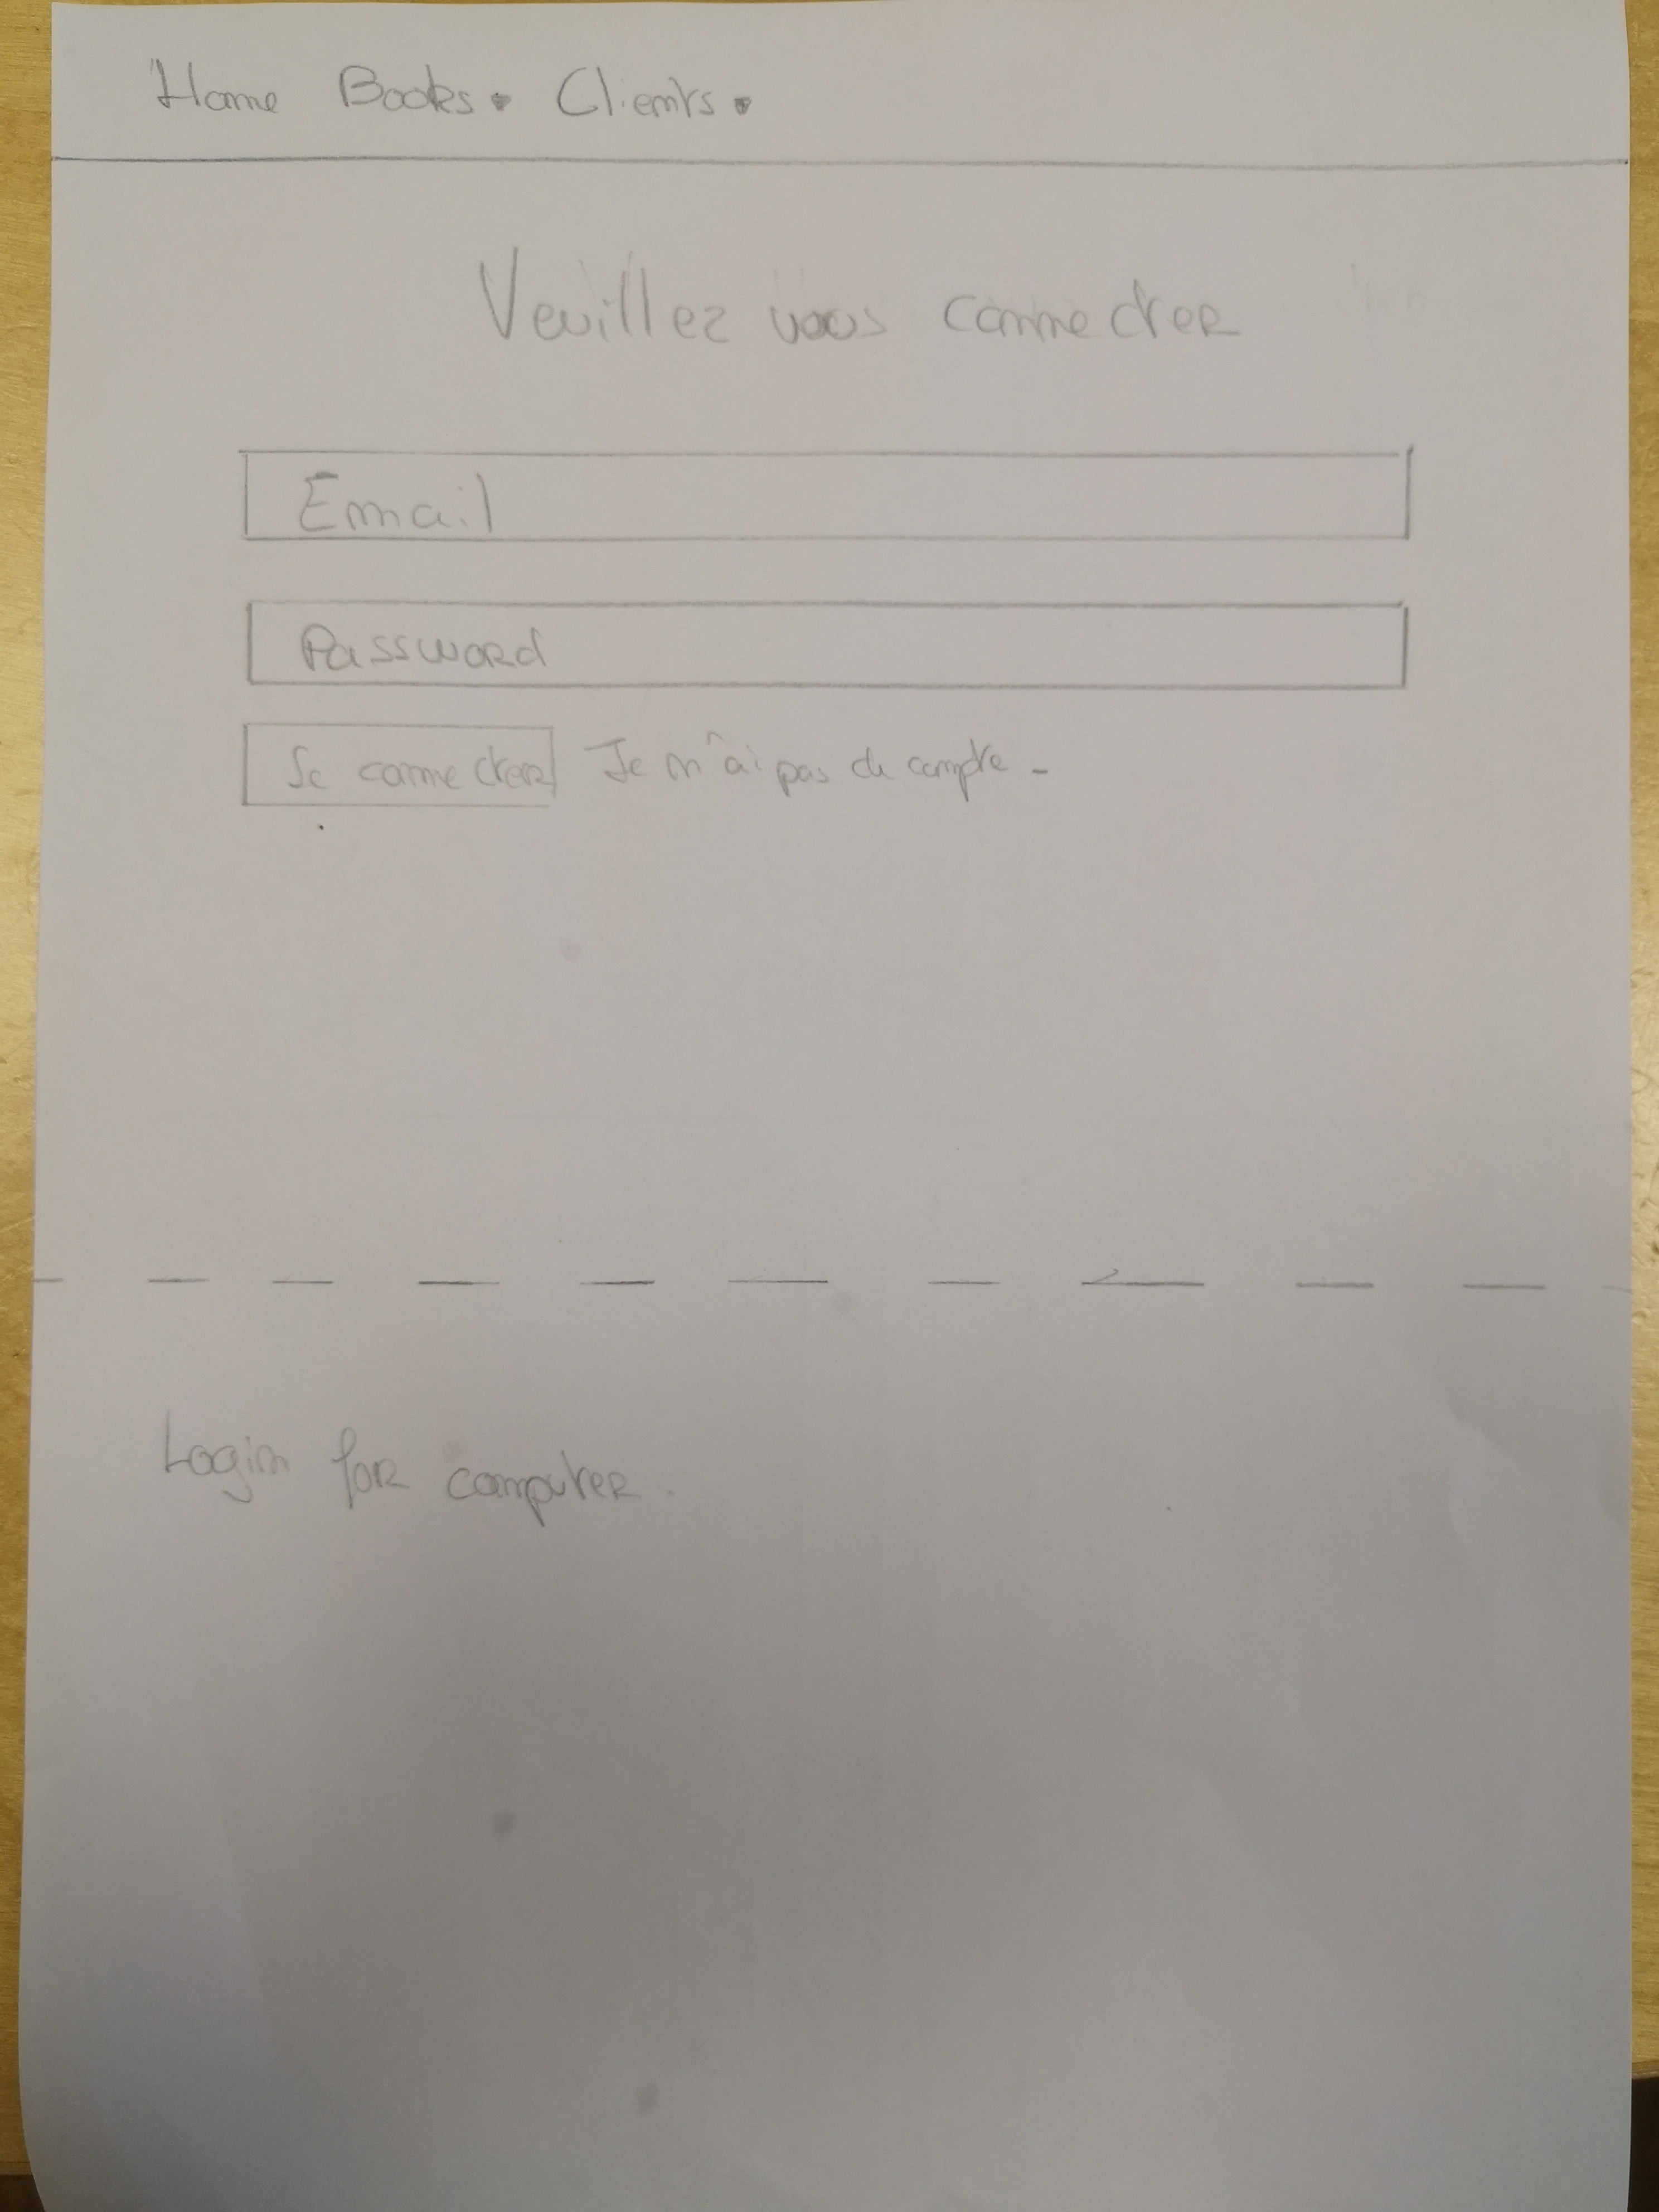 Home Books Clients
Veuillez vous connecter
Email
Password
Se connecter Je n'ai pas de compte -
Login for computer.